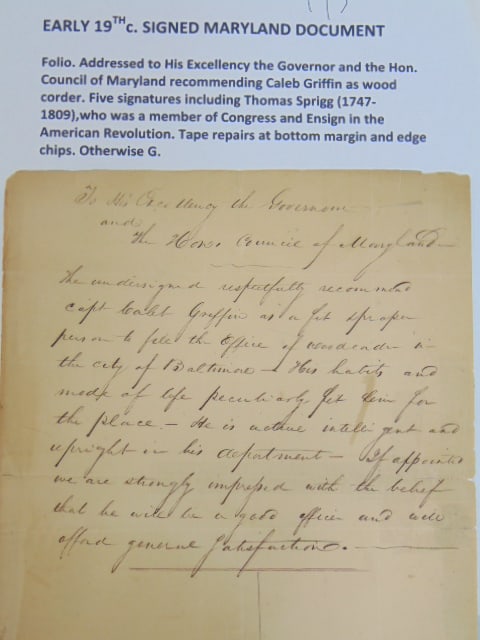 EARLY 19THc. SIGNED MARYLAND DOCUMENT
Folio. Addressed to His Excellency the Governor and the Hon.
Council of Maryland recommending Caleb Griffin as wood
corder. Five signatures including Thomas Sprigg (1747-
1809),who was a member of Congress and Ensign in the
American Revolution. Tape repairs at bottom margin and edge
chips. Otherwise G.
To His Excellency the Governor
and
The Hon. Council of Maryland
The undersigned respectfully recommend
Capt Caleb Griffin as a fit & proper
person to fill the Office of woodcorder in
the city of Baltimore – His habits and
mode of life peculiarly fit him for
the place. – He is active intelligent and
upright in his department – If appointed
we are strongly impressed with the belief
that he will be a good officer and will
afford general satisfaction. –